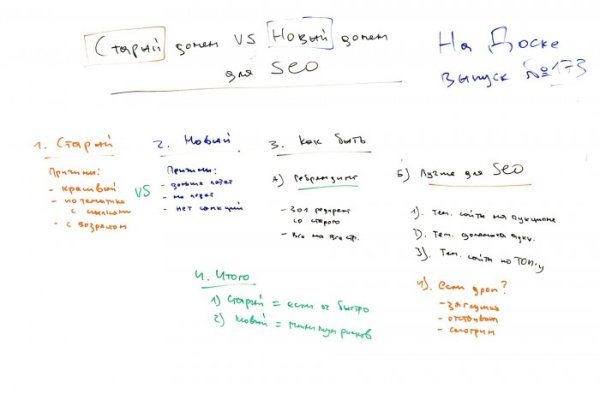 Старый домен VS Новый домен
для SEO
На Доске
выпуск №173
1. Старый
Причины:
- красивый
- по тематике
с ссылками
- с возрастом
VS
2. Новый
Причины:
- дольше
- не
- нет санкций
3. Как быть
А) Ребрендинг
- 301 редирект
со старого
- Все на все стр.
Б) Лучше для SEO
1). Тем. сайты на аукционе
2). Тем. домены
3). Тем. сайты по ТОП-у
4). Если дроп?
- заглушка
- отстаивать
- смотрим
4. Итого
1) Старый = если быстро
2) Новый = минимум рисков